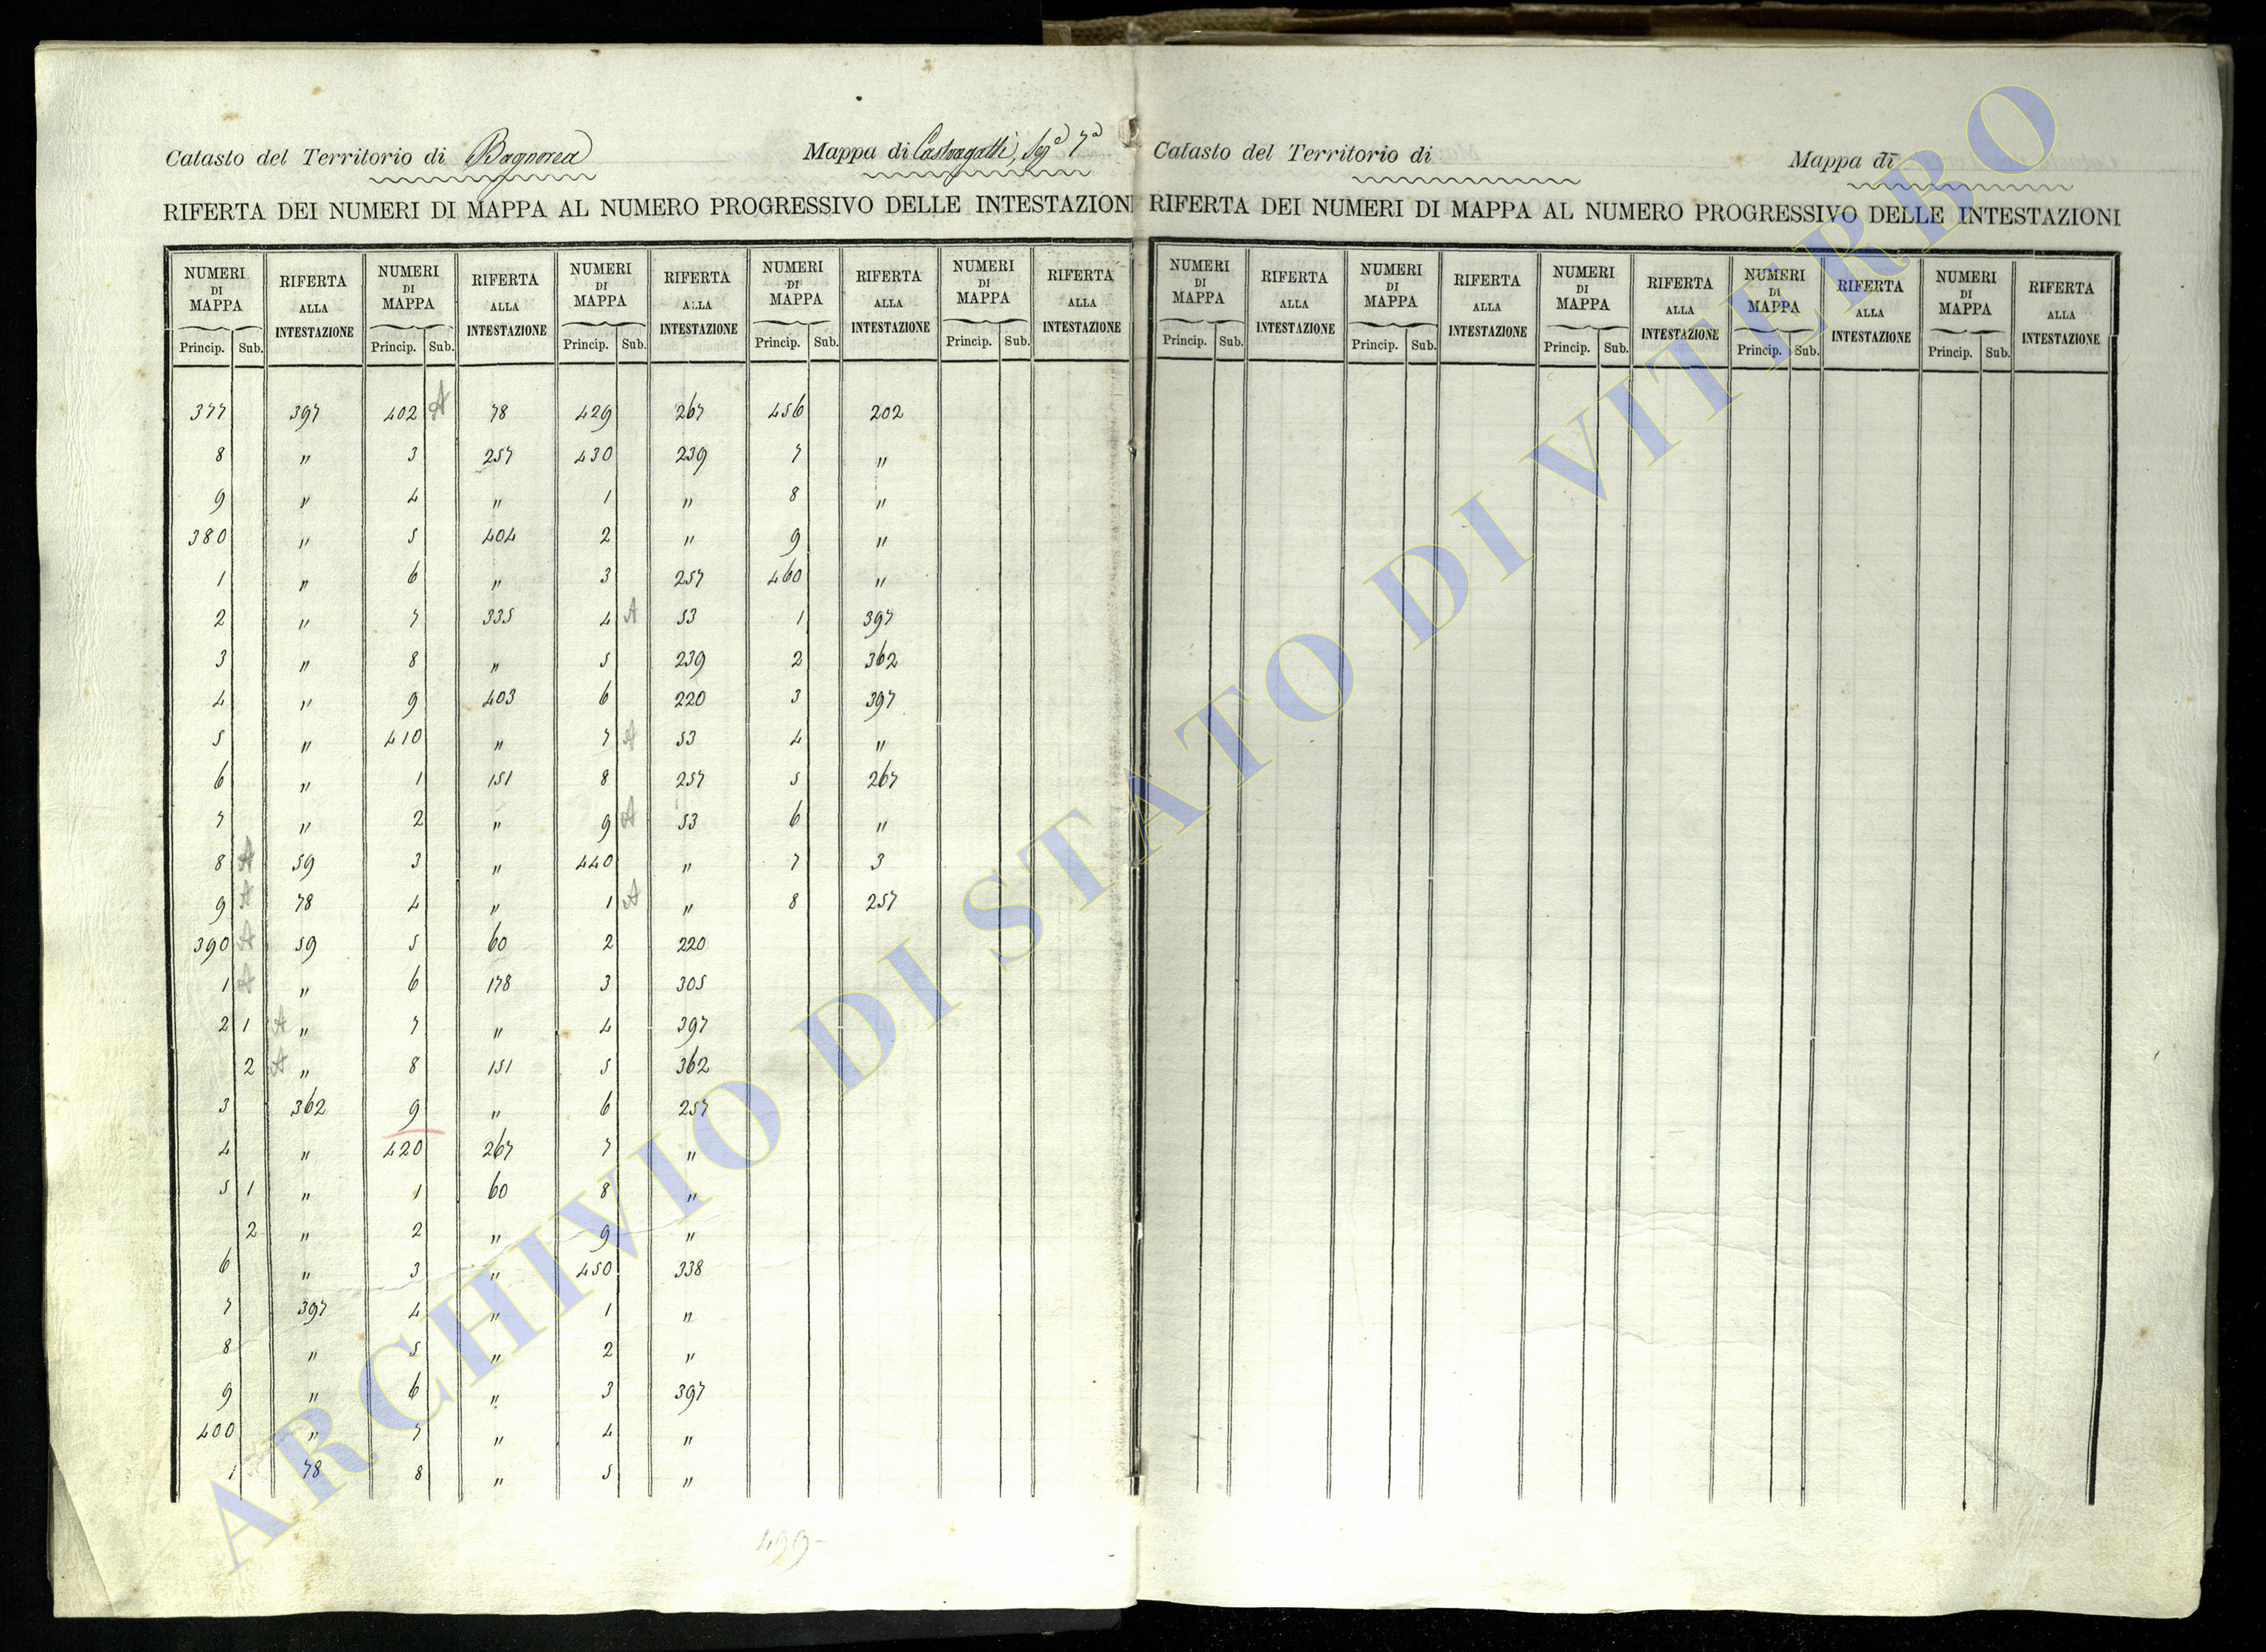 Catasto del Territorio di Bagnorea Mappa di Castragatti, Sezª 7ª
RIFERTA DEI NUMERI DI MAPPA AL NUMERO PROGRESSIVO DELLE INTESTAZION
NUMERI DI MAPPA RIFERTA ALLA INTESTAZIONE NUMERI DI MAPPA RIFERTA ALLA INTESTAZIONE NUMERI DI MAPPA RIFERTA ALLA INTESTAZIONE NUMERI DI MAPPA RIFERTA ALLA INTESTAZIONE NUMERI DI MAPPA RIFERTA ALLA INTESTAZIONE
Princip. Sub. Princip. Sub. Princip. Sub. Princip. Sub. Princip. Sub.
377 397 402 A 78 429 267 456 202
8 " 3 257 430 239 7 "
9 " 4 " 1 " 8 "
380 " 5 404 2 " 9 "
1 " 6 " 3 257 460 "
2 " 7 335 4 A 53 1 397
3 " 8 " 5 239 2 362
4 " 9 403 6 220 3 397
5 " 410 " 7 A 53 4 "
6 " 1 151 8 257 5 267
7 " 2 " 9 A 53 6 "
8 A 59 3 " 440 " 7 3
9 A 78 4 " 1 A " 8 257
390 A 59 5 60 2 220
1 A " 6 178 3 305
2 1 A " 7 " 4 397
2 A " 8 151 5 362
3 362 9 " 6 257
4 " 420 267 7 "
5 1 " 1 60 8 "
2 " 2 " 9 "
6 " 3 " 450 338
7 397 4 " 1 "
8 " 5 " 2 "
9 " 6 " 3 397
400 " 7 " 4 "
1 78 8 " 5 "
499-
Catasto del Territorio di Mappa di
RIFERTA DEI NUMERI DI MAPPA AL NUMERO PROGRESSIVO DELLE INTESTAZIONI
NUMERI DI MAPPA RIFERTA ALLA INTESTAZIONE NUMERI DI MAPPA RIFERTA ALLA INTESTAZIONE NUMERI DI MAPPA RIFERTA ALLA INTESTAZIONE NUMERI DI MAPPA RIFERTA ALLA INTESTAZIONE NUMERI DI MAPPA RIFERTA ALLA INTESTAZIONE
Princip. Sub. Princip. Sub. Princip. Sub. Princip. Sub. Princip. Sub.
ARCHIVIO DI STATO DI VITERBO